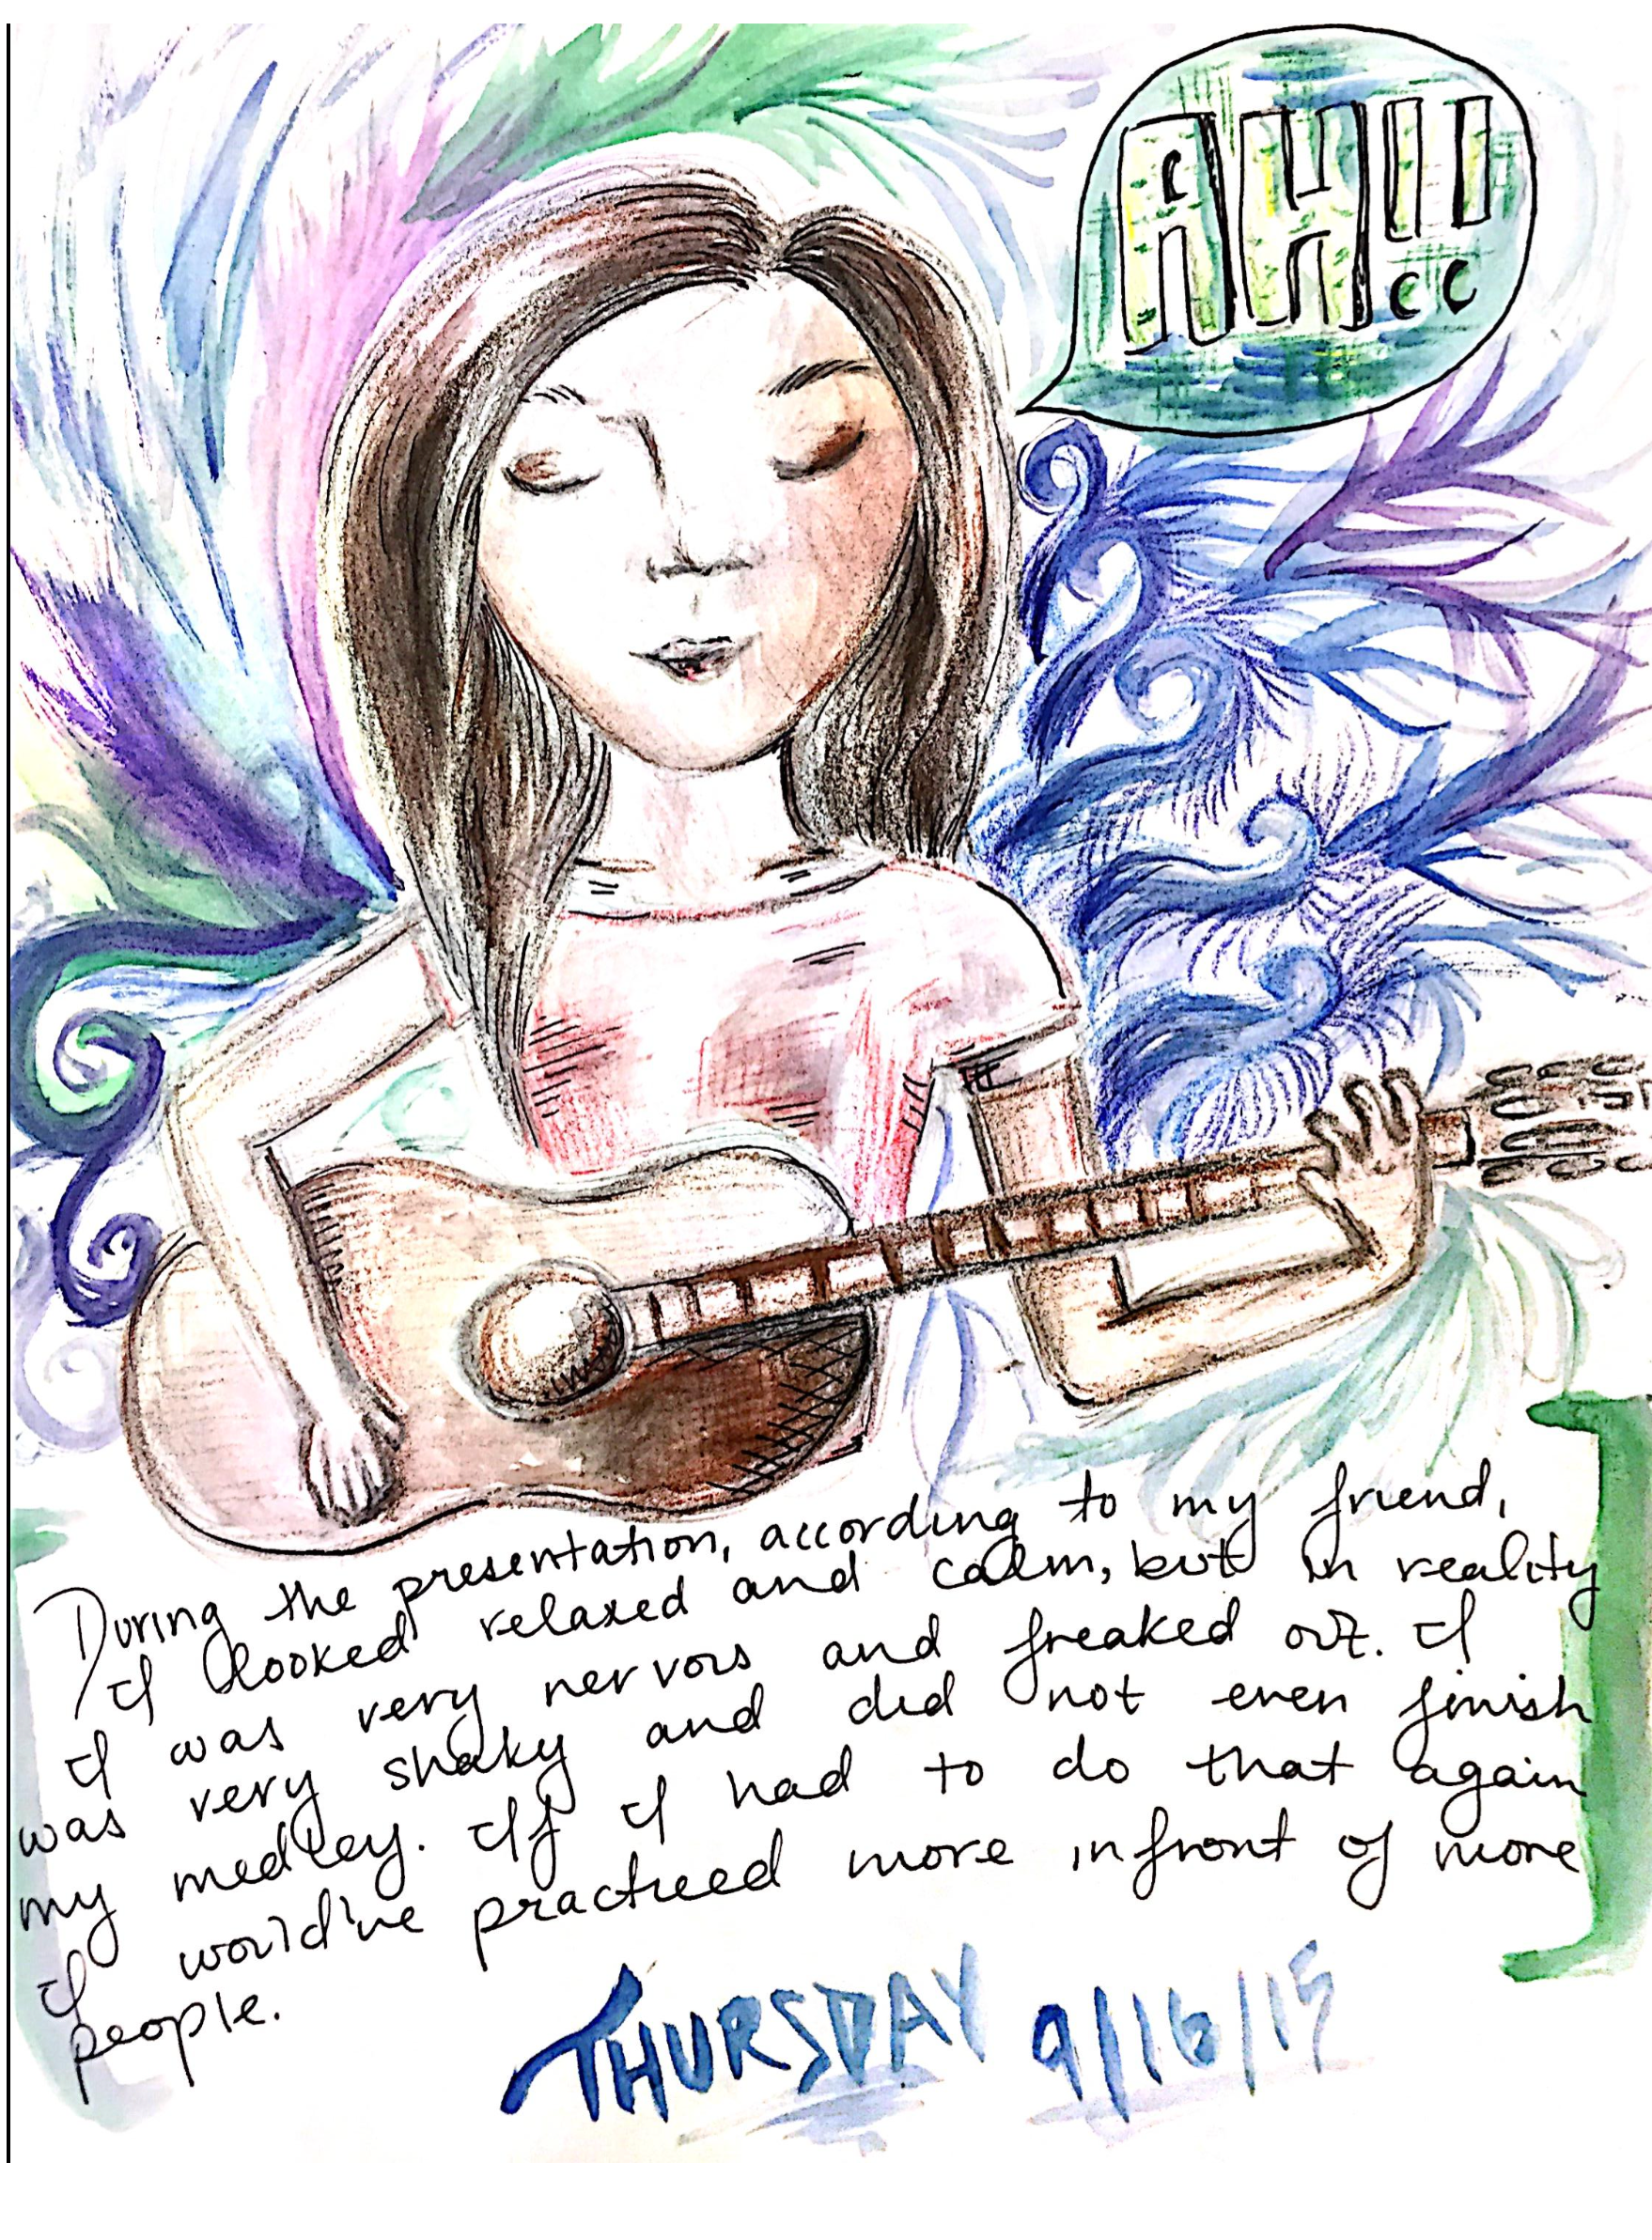 AH!!
During the presentation, according to my friend,
I looked relaxed and calm, but in reality
I was very nervous and freaked out. I
was very shaky and did not even finish
my medley. If I had to do that again
I would've practiced more infront of more
people.
THURSDAY 9/16/15